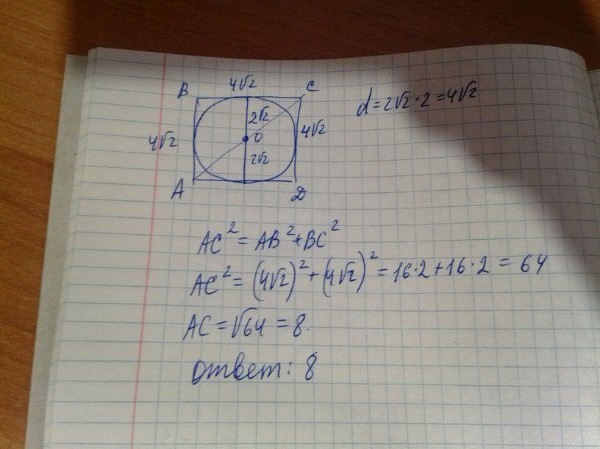 4√2
B C
d=2√2·2=4√2
2√2
4√2 O 4√2
2√2
A D
AC²=AB²+BC²
AC²=(4√2)²+(4√2)²=16·2+16·2=64
AC=√64=8.
Ответ: 8